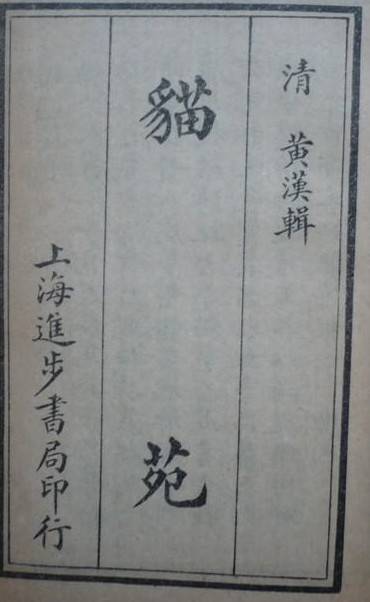 清 黃漢輯
貓苑
上海進步書局印行